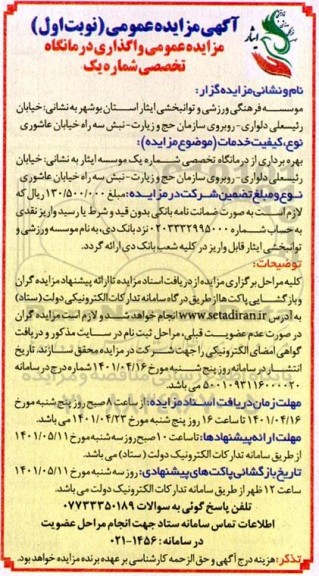 آگهی مزایده عمومی (نوبت اول)
مزایده عمومی واگذاری درمانگاه
تخصصی شماره یک
ایثار
نام و نشانی مزایده گزار:
موسسه فرهنگی ورزشی و توانبخشی ایثار استان بوشهر به نشانی: خیابان
رئیسعلی دلواری - روبروی سازمان حج و زیارت - نبش سه راه خیابان عاشوری
نوع، کیفیت خدمات (موضوع مزایده):
بهره برداری از درمانگاه تخصصی شماره یک موسسه ایثار به نشانی: خیابان
رئیسعلی دلواری - روبروی سازمان حج و زیارت - نبش سه راه خیابان عاشوری
نوع و مبلغ تضمین شرکت در مزایده: مبلغ ۱۳۰/۵۰۰/۰۰۰ ریال که
لازم است به صورت ضمانت نامه بانکی بدون قید و شرط یا رسید واریز نقدی
به حساب شماره ۰۲۰۳۳۳۲۹۹۵۰۰۰ نزد بانک دی، به نام موسسه ورزشی و
توانبخشی ایثار قابل واریز در کلیه شعب بانک دی ارائه گردد.
توضیحات:
کلیه مراحل برگزاری مزایده از دریافت اسناد مزایده تا ارائه پیشنهاد مزایده گران
و بازگشایی پاکت ها از طریق درگاه سامانه تدارکات الکترونیکی دولت (ستاد)
به آدرس www.setadiran.ir انجام خواهد شد و لازم است مزایده گران
در صورت عدم عضویت قبلی، مراحل ثبت نام در سایت مذکور و دریافت
گواهی امضای الکترونیکی را جهت شرکت در مزایده محقق سازند. تاریخ
انتشار در سامانه روز پنج شنبه مورخ ۱۴۰۱/۰۴/۱۶ شماره درج در سامانه
۵۰۰۱۰۹۳۱۱۶۰۰۰۰۲۰ می باشد.
مهلت زمان دریافت اسناد مزایده: از ساعت ۸ صبح روز پنج شنبه مورخ
۱۴۰۱/۰۴/۱۶ تا ساعت ۱۶ روز پنج شنبه مورخ ۱۴۰۱/۰۴/۲۳ می باشد.
مهلت ارائه پیشنهادها: تا ساعت ۱۰ صبح روز سه شنبه مورخ ۱۴۰۱/۰۵/۱۱
از طریق سامانه تدارکات الکترونیک دولت (ستاد) می باشد.
تاریخ بازگشائی پاکت های پیشنهادی: روز سه شنبه مورخ ۱۴۰۱/۰۵/۱۱
ساعت ۱۲ ظهر از طریق سامانه تدارکات الکترونیک دولت می باشد.
تلفن پاسخ گوئی به سوالات ۰۷۷۳۳۳۵۰۱۸۹
اطلاعات تماس سامانه ستاد جهت انجام مراحل عضویت
در سامانه: ۱۴۵۶-۰۲۱
تذکر: هزینه درج آگهی و حق الزحمه کارشناسی بر عهده برنده مزایده خواهد بود.